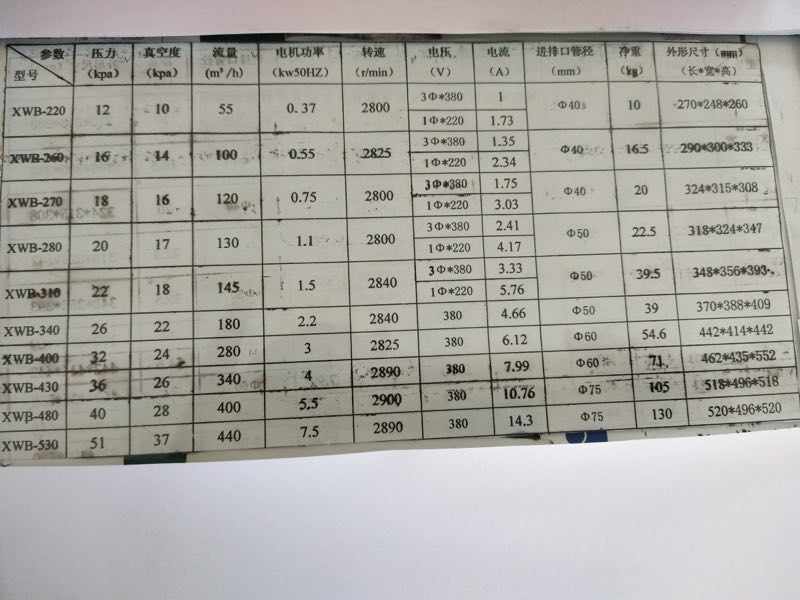 参数 压力 真空度 流量 电机功率 转速 电压 电流 进排口管径 净重 外形尺寸(mm)
型号 (kpa) (kpa) (m³/h) (kw50HZ) (r/min) (V) (A) (mm) (kg) (长*宽*高)
XWB-220 12 10 55 0.37 2800 3Φ*380 1 Φ40 10 270*248*260
1Φ*220 1.73
XWB-260 16 14 100 0.55 2825 3Φ*380 1.35 Φ40 16.5 290*300*333
1Φ*220 2.34
XWB-270 18 16 120 0.75 2800 3Φ*380 1.75 Φ40 20 324*315*308
1Φ*220 3.03
XWB-280 20 17 130 1.1 2800 3Φ*380 2.41 Φ50 22.5 318*324*347
1Φ*220 4.17
XWB-310 22 18 145 1.5 2840 3Φ*380 3.33 Φ50 39.5 348*356*393
1Φ*220 5.76
XWB-340 26 22 180 2.2 2840 380 4.66 Φ50 39 370*388*409
XWB-400 32 24 280 3 2825 380 6.12 Φ60 54.6 442*414*442
XWB-430 36 26 340 4 2890 380 7.99 Φ60 71 462*435*552
XWB-480 40 28 400 5.5 2900 380 10.76 Φ75 105 518*496*518
XWB-530 51 37 440 7.5 2890 380 14.3 Φ75 130 520*496*520